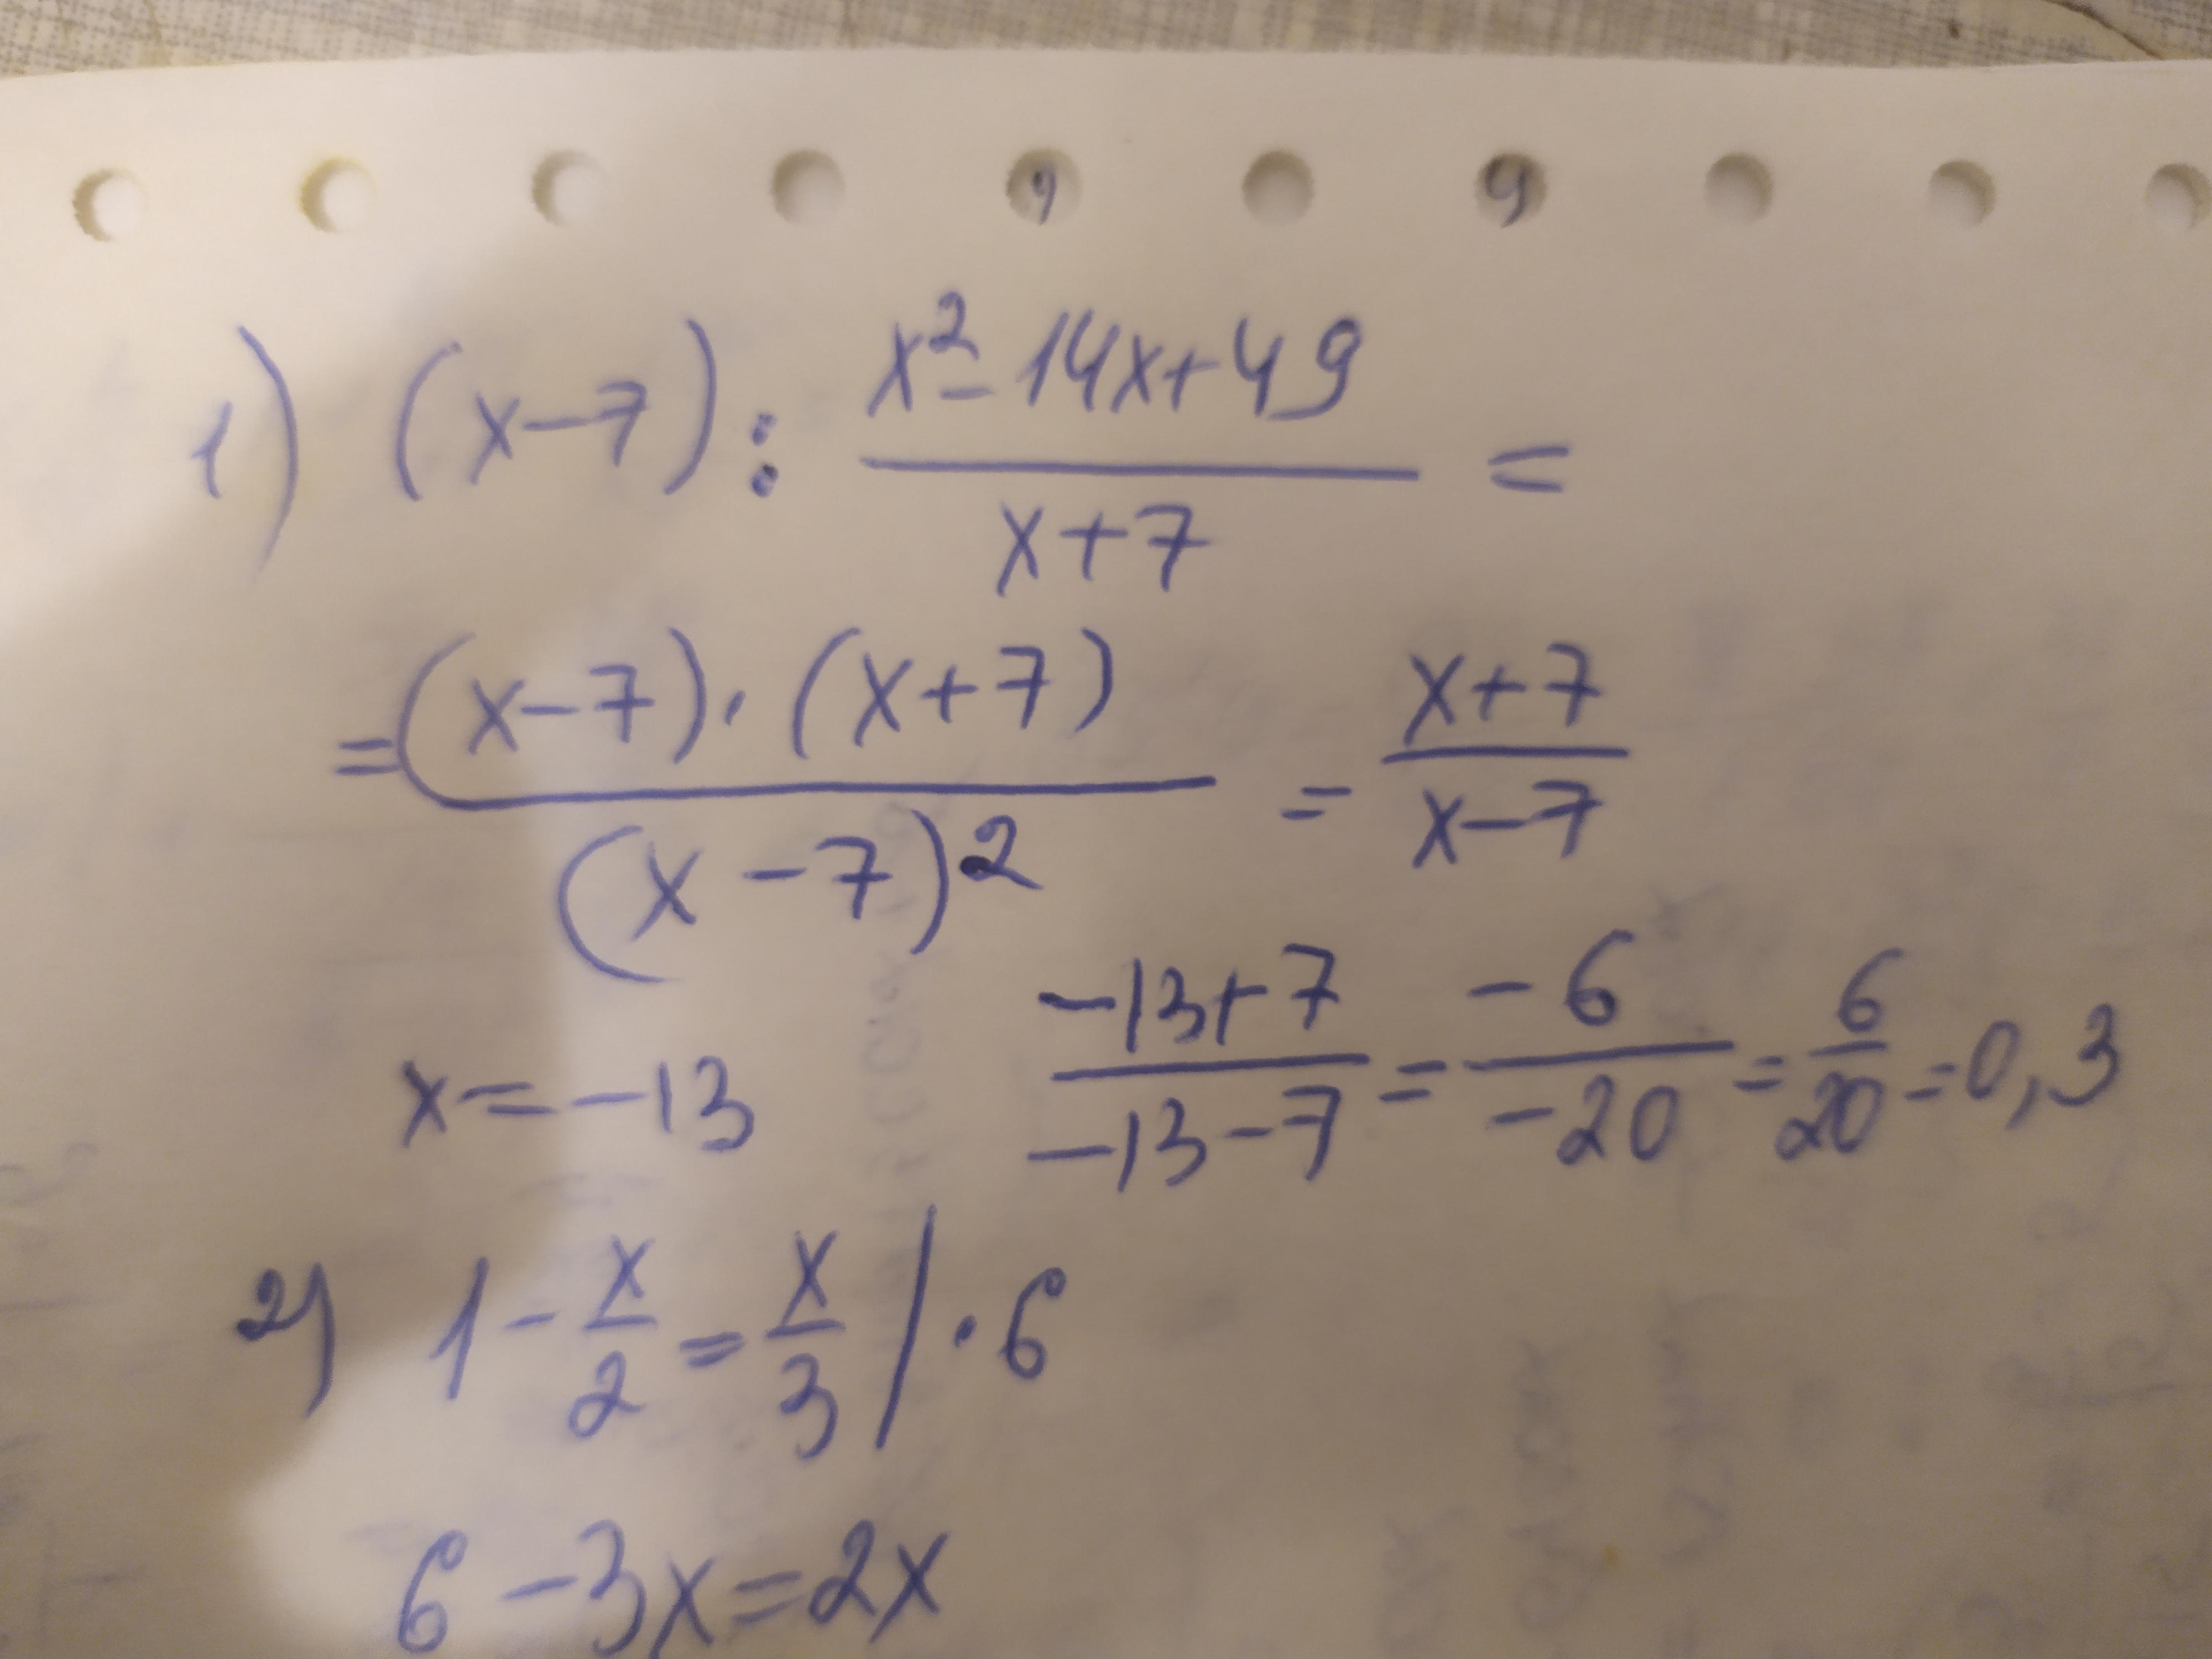 1) (x-7) : \frac{x^2-14x+49}{x+7} =
= \frac{(x-7)\cdot(x+7)}{(x-7)^2} = \frac{x+7}{x-7}
x=-13 \frac{-13+7}{-13-7} = \frac{-6}{-20} = \frac{6}{20} = 0,3
2) 1 - \frac{x}{2} = \frac{x}{3} / \cdot 6
6-3x=2x